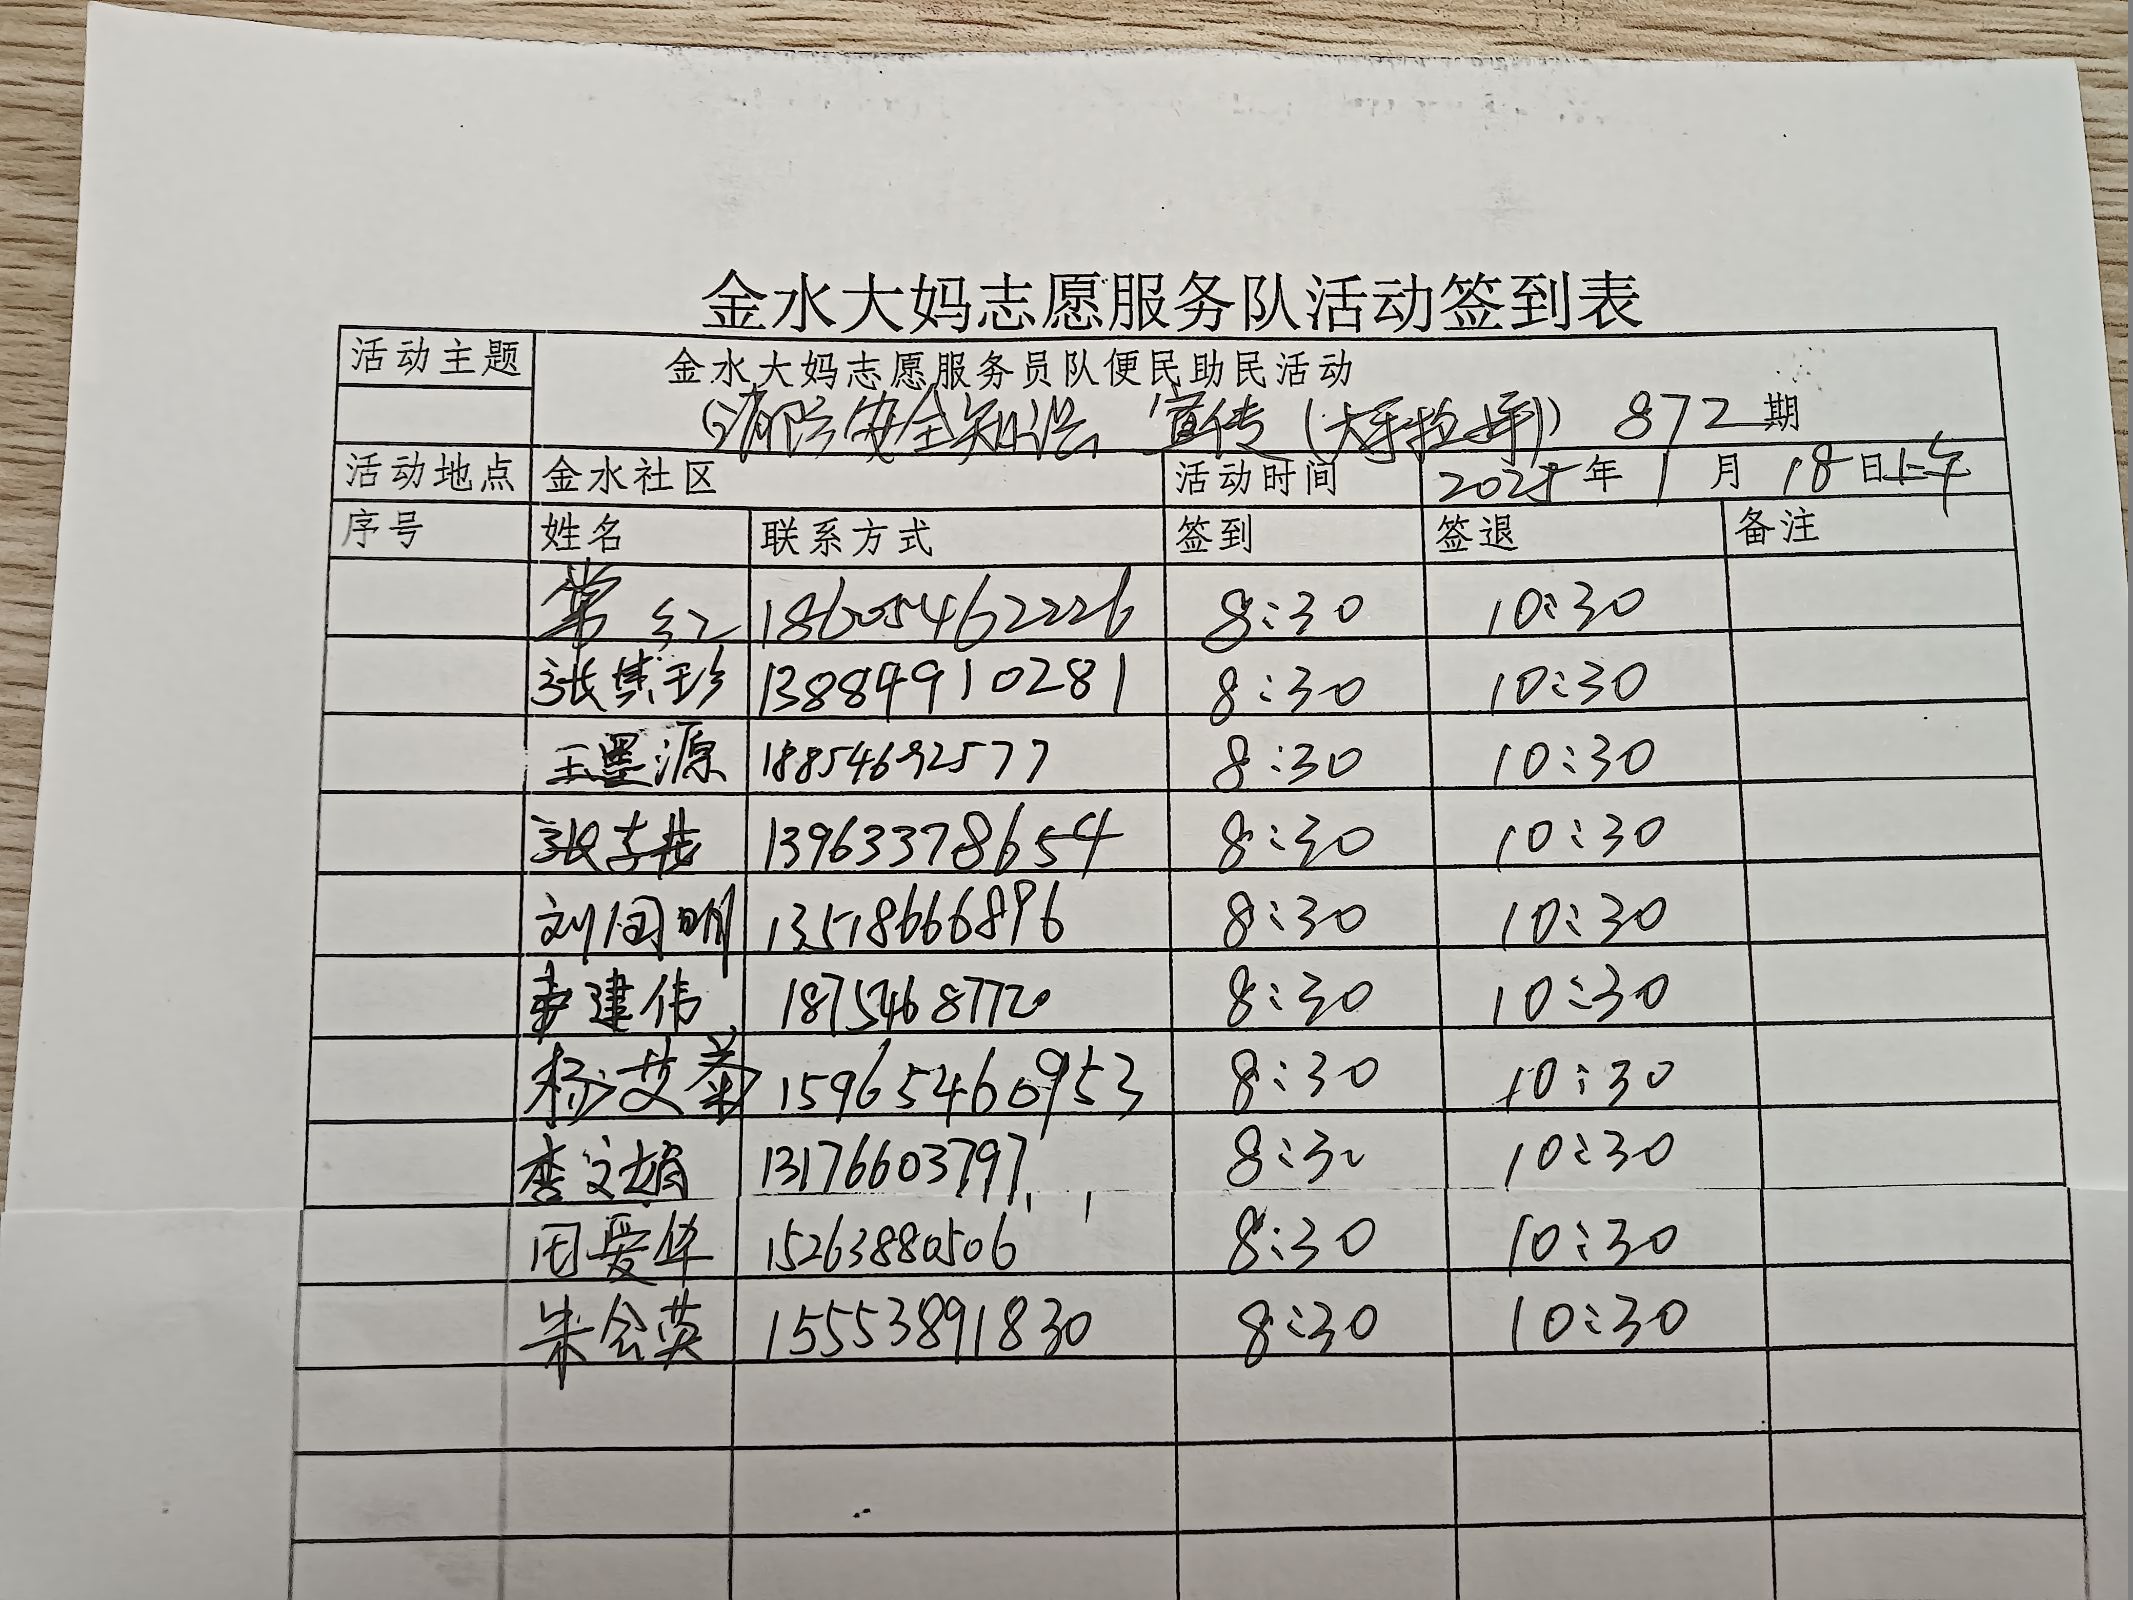 金水大妈志愿服务队活动签到表
活动主题 金水大妈志愿服务员队便民助民活动
(消防安全知识宣传(大手拉小手)) 872期
活动地点 金水社区 活动时间 2025年1月18日上午
序号 姓名 联系方式 签到 签退 备注
常红 18605462226 8:30 10:30
张 珍 13884910281 8:30 10:30
王墨源 18854692577 8:30 10:30
张 13963378654 8:30 10:30
刘 明 13518666896 8:30 10:30
建伟 18754687720 8:30 10:30
杨艾菊 15965460953 8:30 10:30
李文娟 13176603797 8:30 10:30
周爱华 15263880506 8:30 10:30
朱会英 15553891830 8:30 10:30